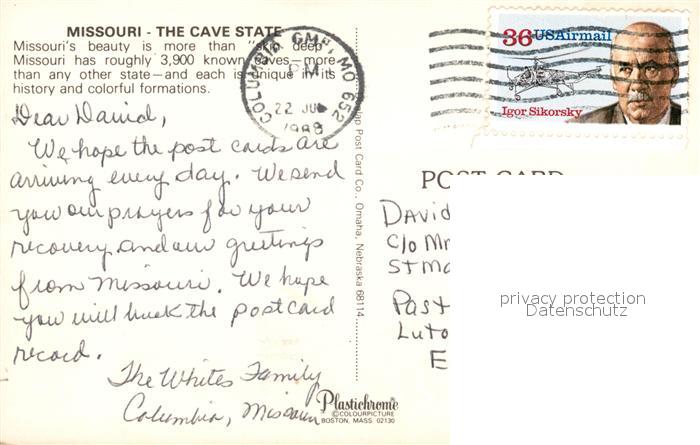 MISSOURI - THE CAVE STATE
Missouri's beauty is more than "skin deep".
Missouri has roughly 3,900 known caves—more
than any other state—and each is unique in its
history and colorful formations.
COLUMBIA GMF, MO 652
PM
22 JUL
1988
36 USAirmail
Igor Sikorsky
Dear David,
We hope the post cards are
arriving every day. We send
you our prayers for your
recovery and our greetings
from Missouri. We hope
you will buck the postcard
record.
The Whites Family
Columbia, Missouri
Post Card Co., Omaha, Nebraska 68114
Plastichrome
©COLOURPICTURE
BOSTON, MASS. 02130
POST CARD
David
C/O Mr
St Ma
Past
Luto
E
privacy protection
Datenschutz